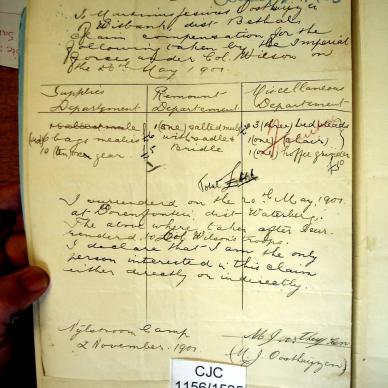 I, Marthinus Jesaias Oosthuizen
Witbank, dist Bethal
Claim compensation for the
following taken by the Imperial
Forces under Col. Wilson on
the 20th May 1901.
Supplies Department
Remount Departement
Miscellaneous Department
bags mealies
10 (ten) ox gear
1 (one) salted mule
with saddle &
Bridle
3 (three) bedsteads
1 (one)
1 (one) koffie grinder
Total
I surrendered on the 20th May 1901
at Doornfontein, dist Waterberg.
The above where taken after I sur-
rendered to Col Wilson's troops.
I declare that I am the only
person interested in this claim
either directly or indirectly.
Nylstroom Camp
2 November 1901
M J Oosthuyzen
(M. J. Oosthuizen)
CJC